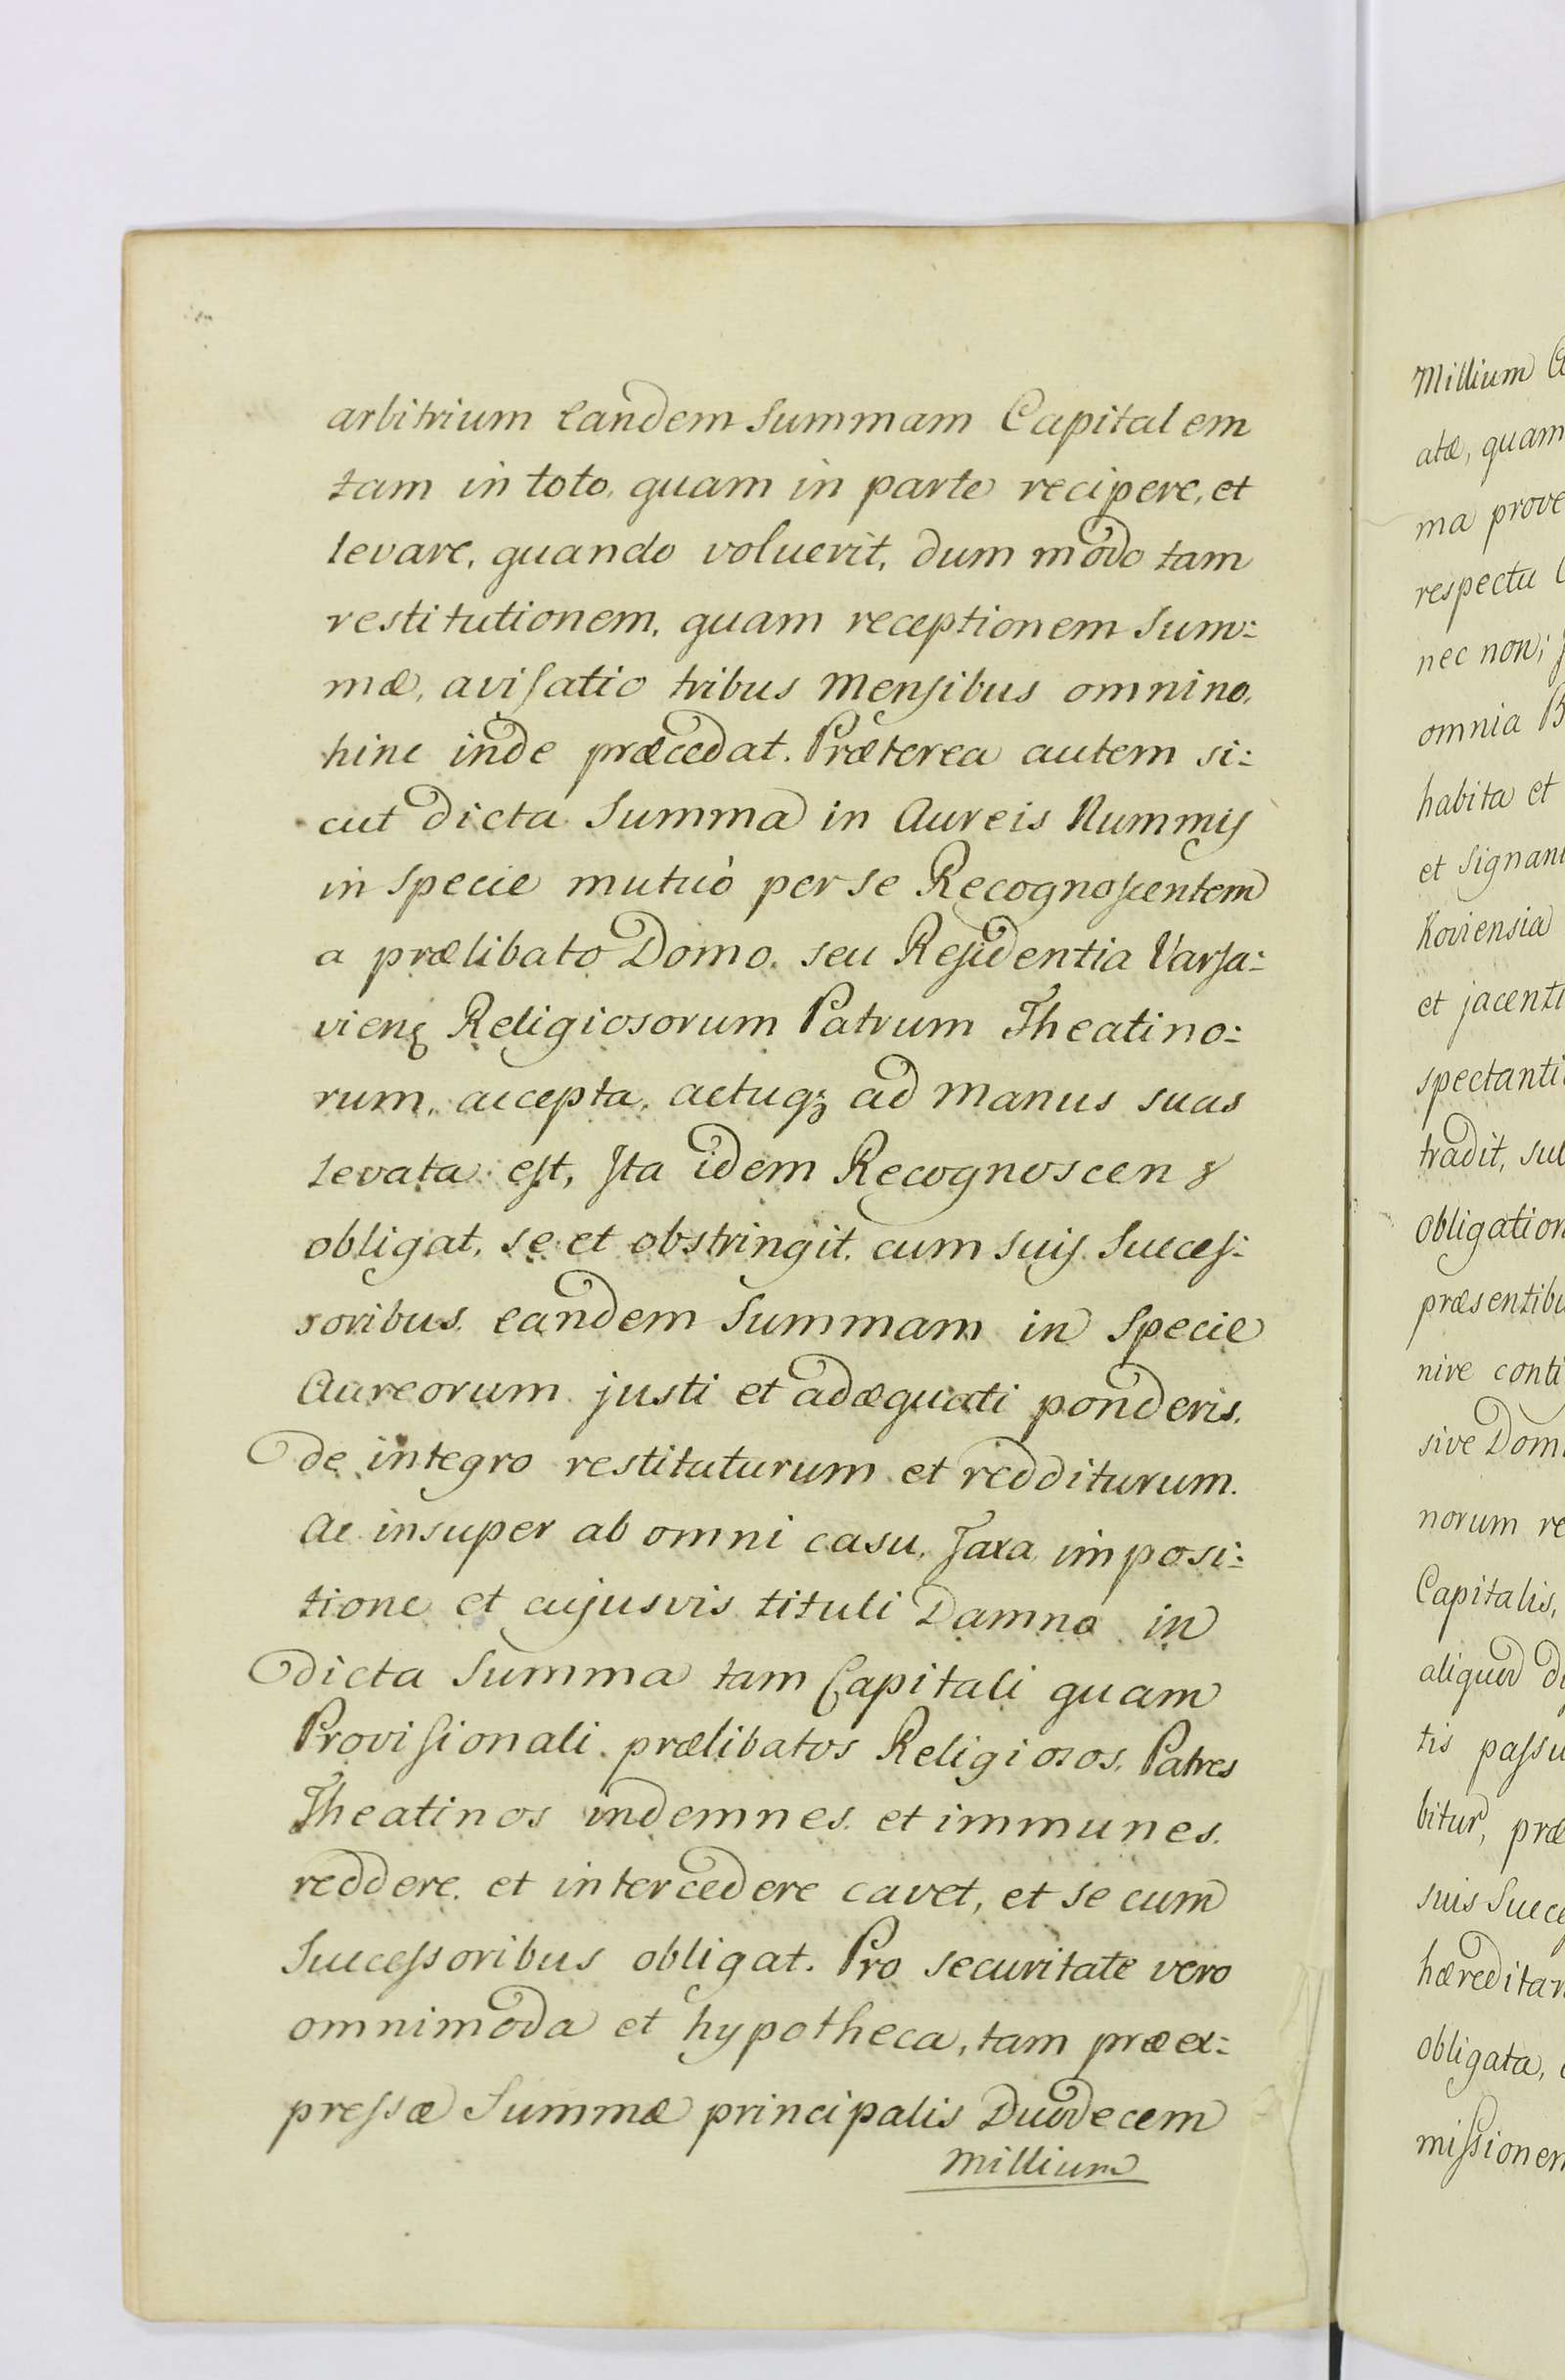 arbitrium eandem Summam Capitalem
tam in toto, quam in parte recipere, et
levare, quando voluerit, dum modo tam
restitutionem, quam receptionem Sum:
mæ, avisatio tribus Mensibus omnino,
hinc inde præcedat. Præterea autem si:
cut dicta Summa in Aureis Nummis
in Specie mutuò per se Recognoscentem
a prælibato Domo seu Residentia Varsa:
vien Religiosorum Patrum Theatino:
rum, accepta, actuq; ad Manus suas
levata est, Ita idem Recognoscens
obligat, se et obstringit, cum suis Succes:
soribus, eandem Summam in Specie
Aureorum justi et adæquati ponderis,
de integro restituturum et redditurum.
Ac insuper ab omni casu, Taxa, imposi:
tione et cujusvis tituli Damno in
dicta Summa tam Capitali quam
Provisionali prælibatos Religiosos, Patres
Theatinos indemnes et immunes
reddere et intercedere cavet, et se cum
Successoribus obligat. Pro securitate vero
omnimoda et hypotheca, tam præex:
pressæ Summæ principalis Duodecem
Millium
Millium
atæ, quam
ma prove
respectu
nec non;
omnia B
habita et
et signan
Koviensia
et jacenti
spectanti
tradit, su
obligation
præsentibu
nire conti
sive Dom
norum re
Capitalis,
aliquod d
tis passu
bitur, præ
suis Succe
hæreditar
obligata,
missionem